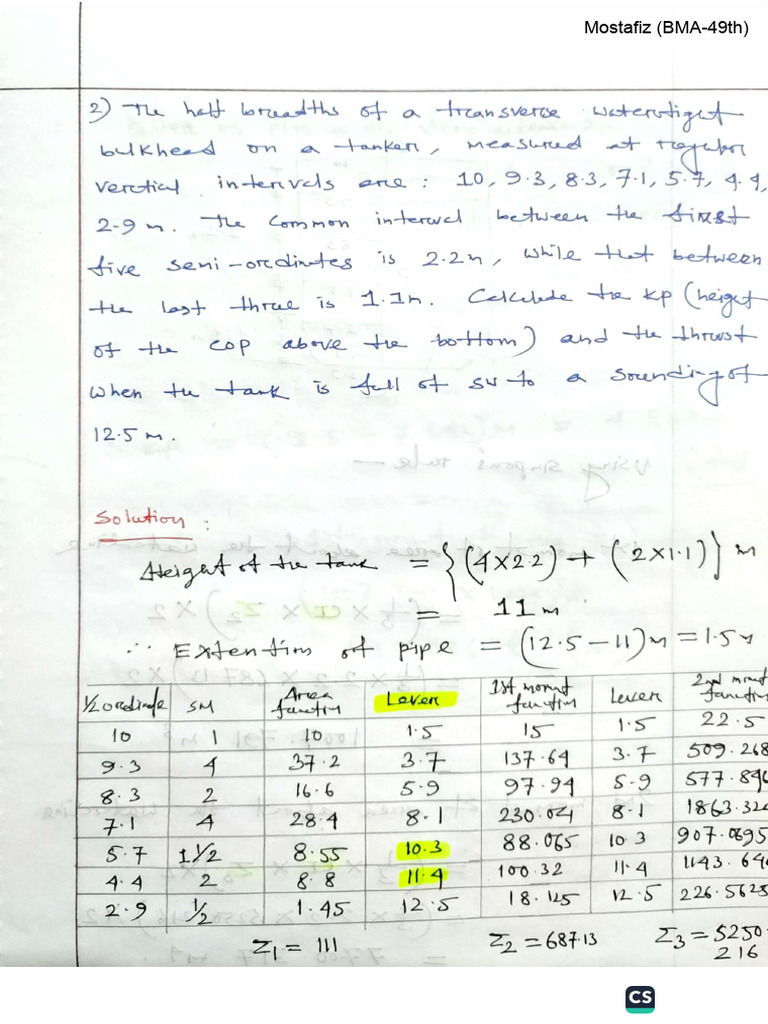 Mostafiz (BMA-49th)
2) The half breadths of a transverse watertight
bulkhead on a tanker, measured at regular
vertical intervals are: 10, 9.3, 8.3, 7.1, 5.7, 4.4,
2.9 m. The common interval between the first
five semi-ordinates is 2.2m, while that between
the last three is 1.1m. Calculate the KP (height
of the COP above the bottom) and the thrust
when the tank is full of SW to a sounding of
12.5 m.
Solution :
Height of the tank = {(4×2.2) + (2×1.1)} m
= 11 m.
∴ Extention of pipe = (12.5 – 11) m = 1.5 m
½ ordinate SM Area function Lever 1st moment function Lever 2nd moment function
10 1 10 1.5 15 1.5 22.5
9.3 4 37.2 3.7 137.64 3.7 509.268
8.3 2 16.6 5.9 97.94 5.9 577.846
7.1 4 28.4 8.1 230.04 8.1 1863.324
5.7 1½ 8.55 10.3 88.065 10.3 907.0695
4.4 2 8.8 11.4 100.32 11.4 1143.648
2.9 ½ 1.45 12.5 18.125 12.5 226.5625
Σ1 = 111 Σ2 = 687.13 Σ3 = 5250.
216
CS